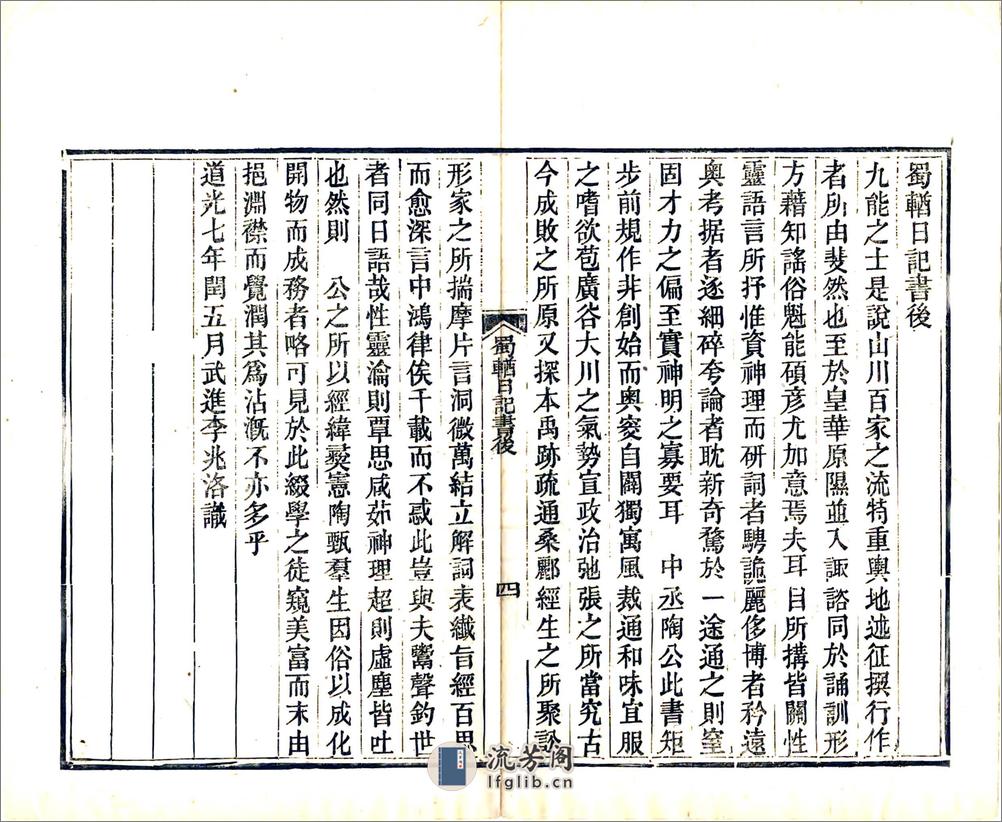 蜀輶日記書後
九能之士是說山川百家之流特重輿地述征撰行作
者所由斐然也至於皇華原隰並入諏諮同於誦訓形
方藉知謠俗魁能碩彥尤加意焉夫耳目所搆皆關性
靈語言所抒惟資神理而研詞者騁詭麗侈博者矜遠
奧考据者逐細碎夸論者耽新奇騖於一途通之則窒
固才力之偏至實神明之寡要耳　中丞陶公此書矩
步前規作非創始而奧窔自闢獨寓風裁通和味宜服
之嗜欲苞廣谷大川之氣勢宣政治弛張之所當究古
今成敗之所原又探本禹跡疏通桑酈經生之所聚訟
蜀輶日記書後
四
形家之所揣摩片言洞微萬結立解詞表纖旨經百思
而愈深言中鴻律俟千載而不惑此豈與夫鬻聲釣世
者同日語哉性靈瀹則覃思咸茹神理超則虛塵皆吐
也然則　公之所以經緯彝憲陶甄羣生因俗以成化
開物而成務者略可見於此綴學之徒窺美富而末由
挹淵襟而覺潤其爲沾漑不亦多乎
道光七年閏五月武進李兆洛識
流芳閣
lfglib.cn